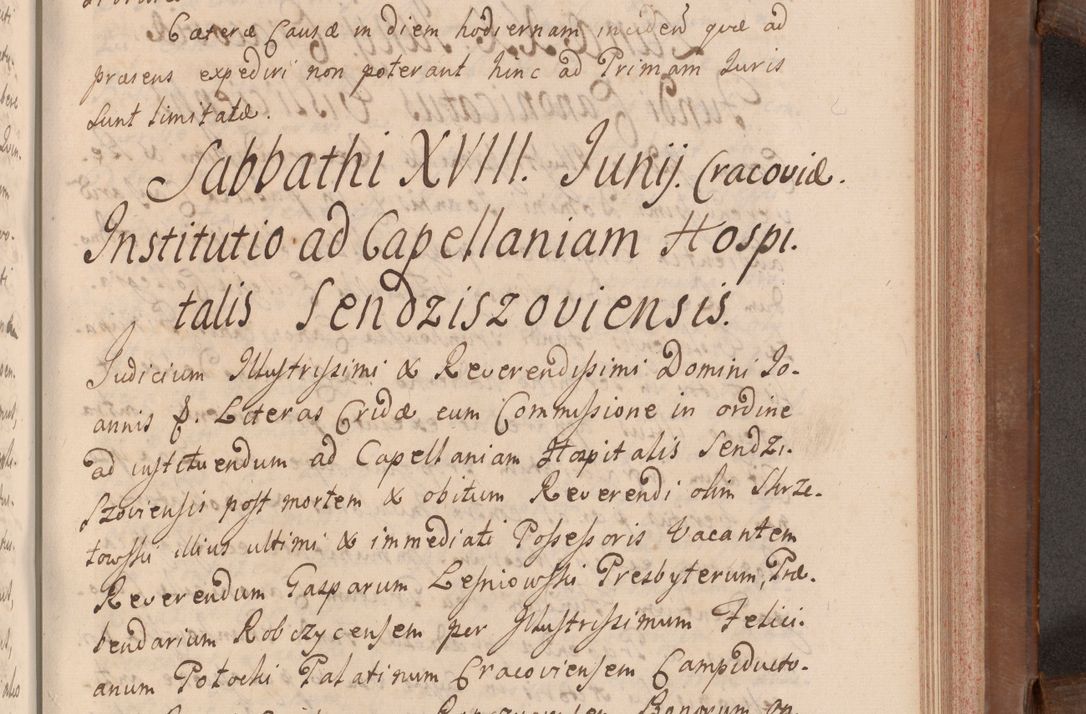 Cæteræ Causæ in diem hodiernam inciden̄ quæ ad
præsens expediri non poterant hinc ad Primam Iuris
sunt limitatæ.
Sabbathi XVIII. Junij. Cracoviæ.
Institutio ad Capellaniam Hospi.
talis Sendziszoviensis.
Judicium Illustrissimi & Reverendissimi Domini Jo.
annis P. Literas Cridæ cum Commissione in ordine
ad instituendum ad Capellaniam Hospitalis Sendzi.
szoviensis post mortem & obitum Reverendi olim Skrze.
towski illius ultimi & immediati Possessoris Vacantem
Reverendum Gasparum Lesniowski Presbyterum, Præ.
bendarium Robczycensem per Illustrissimum Felici.
anum Potocki Palatinum Cracoviensem Campiducto.
Bonorum